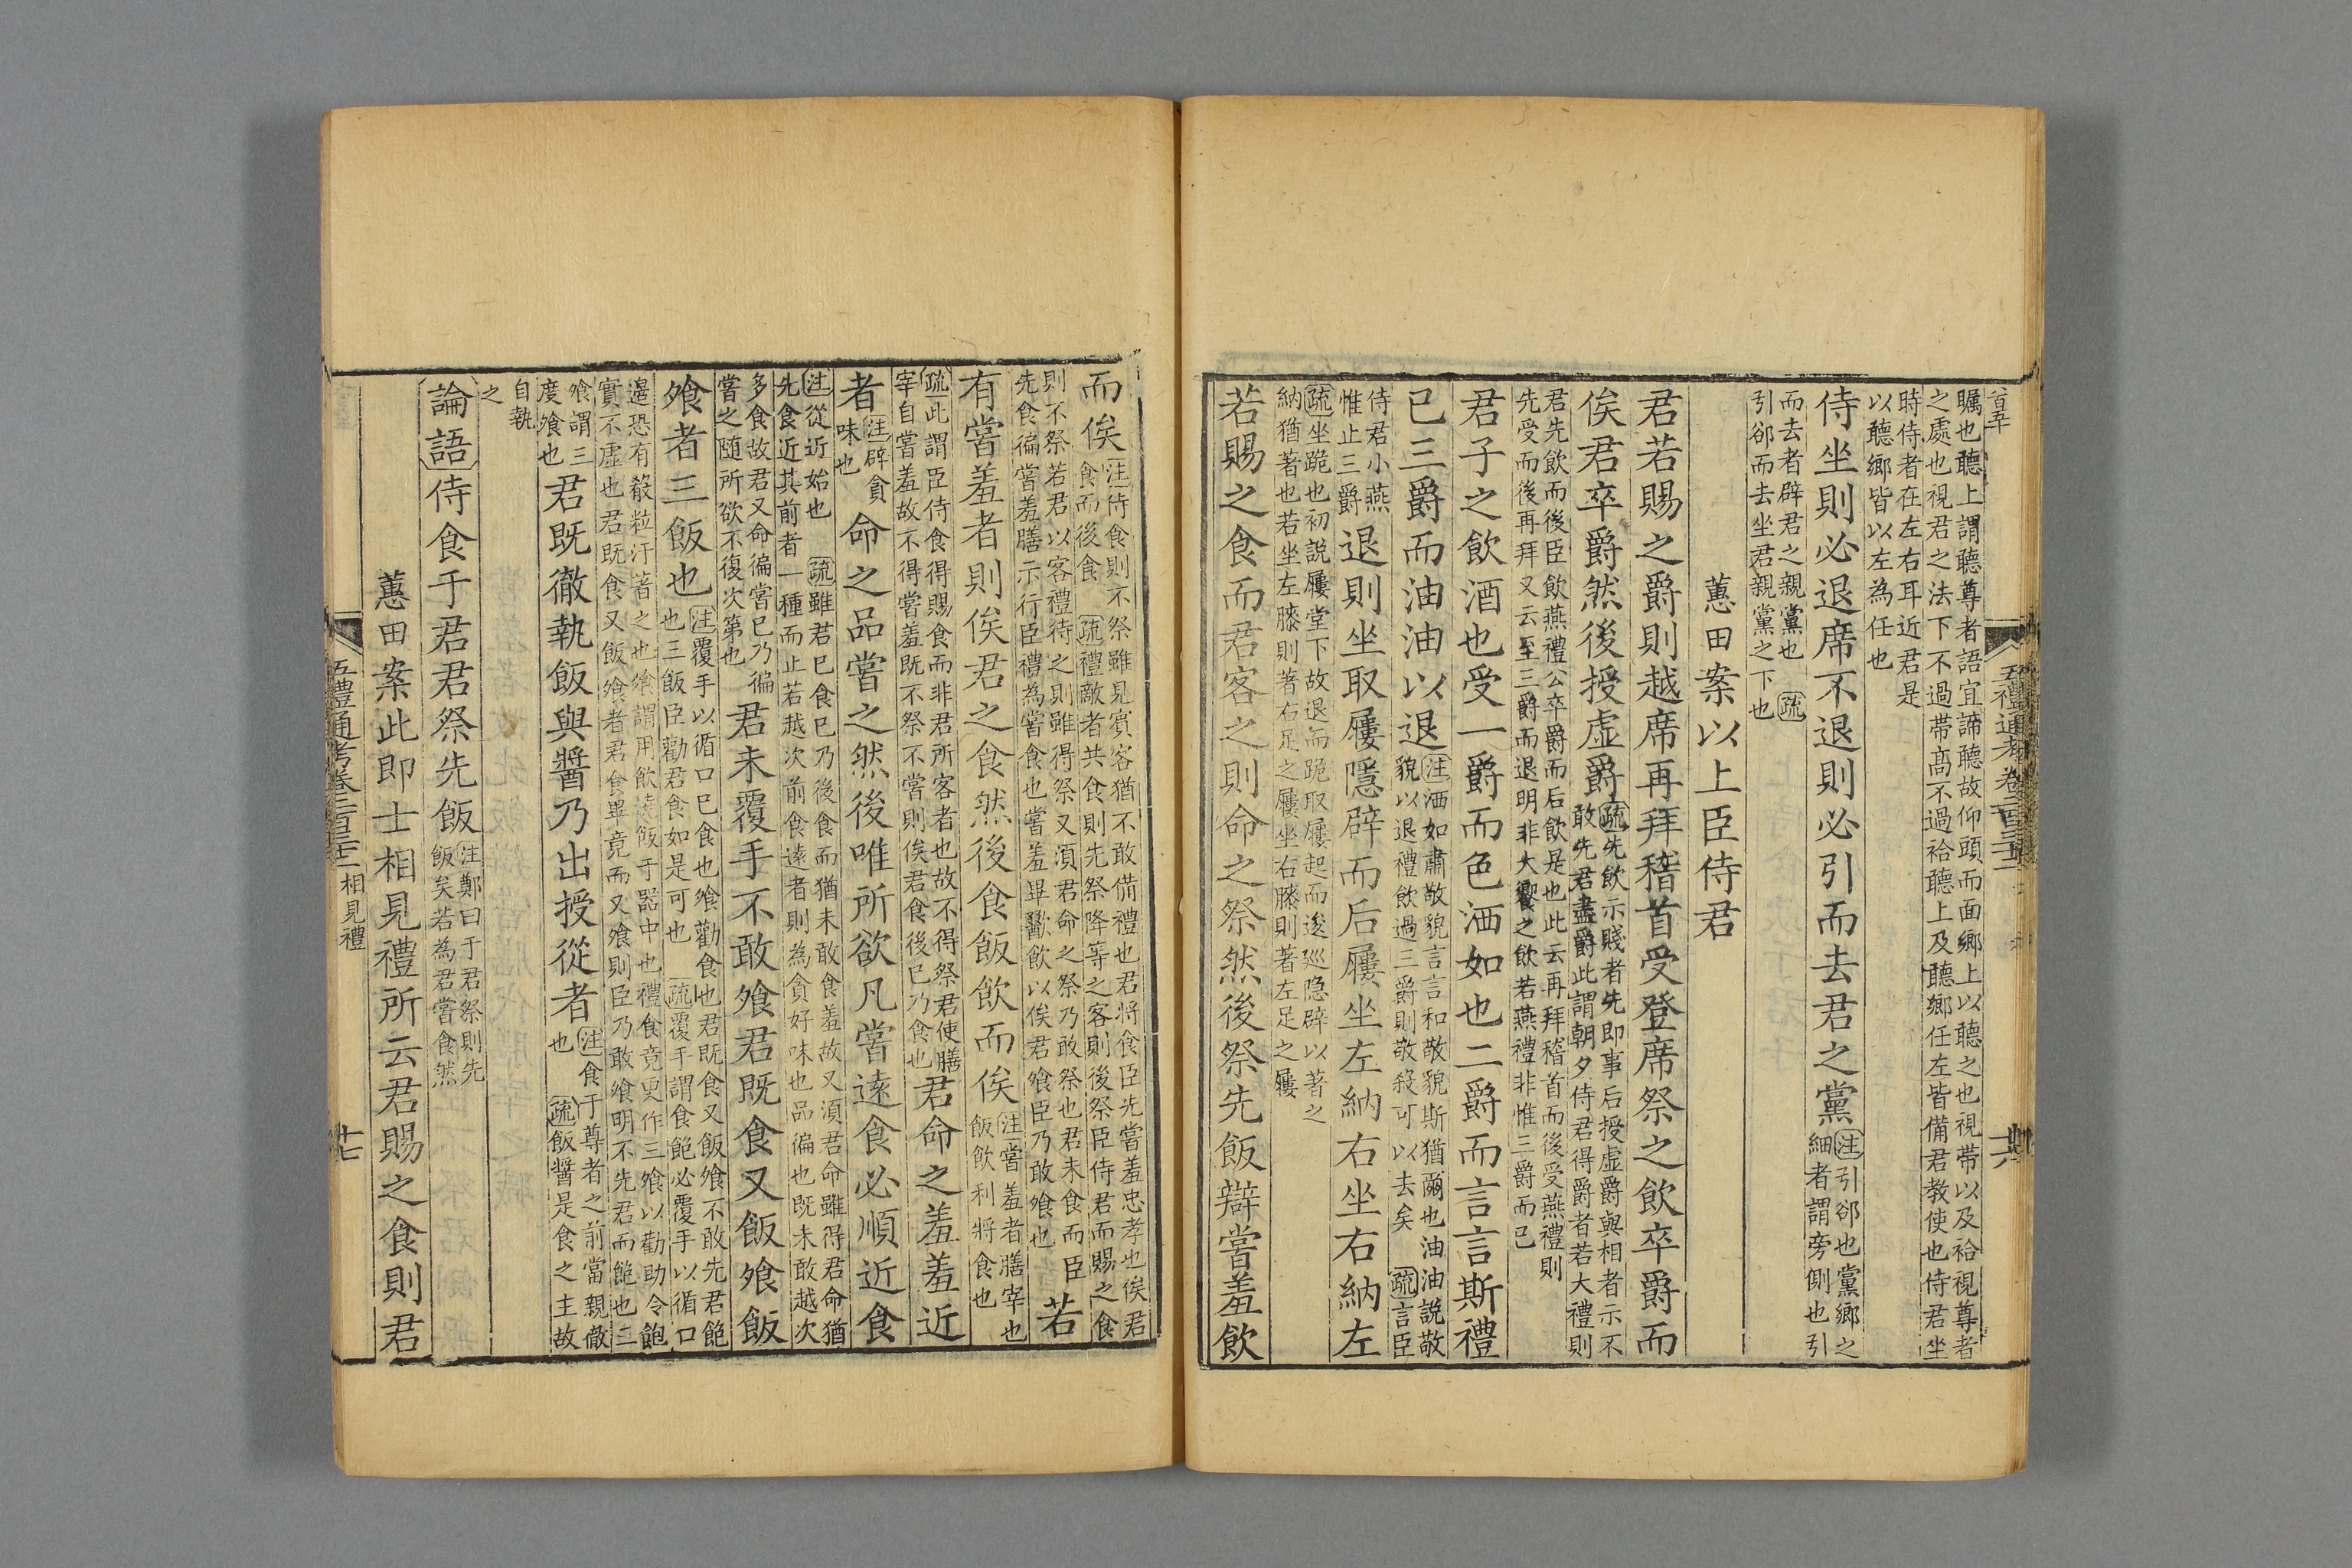 矚也聽上謂聽尊者語宜諦聽故仰頭而面鄉上以聽之也視帶以及袷視尊者
之處也視君之法下不過帶高不過袷聽上及聽鄉任左皆備君教使也侍君坐
時侍者在左右耳近君是
以聽鄉皆以左為任也
侍坐則必退席不退則必引而去君之黨注引郤也黨鄉之
細者謂旁側也引
而去者辟君之親黨也　疏
引郤而去坐君親黨之下也
蕙田案以上臣侍君
君若賜之爵則越席再拜稽首受登席祭之飲卒爵而
俟君卒爵然後授虛爵疏先飲示賤者先即事后授虛爵與相者示不
敢先君盡爵此謂朝夕侍君得爵者若大禮則
君先飲而後臣飲燕禮公卒爵而后飲是也此云再拜稽首而後受燕禮則
先受而後再拜又云至三爵而退明非大饗之飲若燕禮非惟三爵而已
君子之飲酒也受一爵而色洒如也二爵而言言斯禮
已三爵而油油以退注洒如肅敬貌言言和敬貌斯猶爾也油油說敬
貌以退禮飲過三爵則敬殺可以去矣　疏言臣
侍君小燕
惟止三爵
退則坐取屨隱辟而后屨坐左納右坐右納左
疏坐跪也初說屨堂下故退而跪取屨起而逡巡隐辟以著之
納猶著也若坐左膝則著右足之屨坐右膝則著左足之屨
若賜之食而君客之則命之祭然後祭先飯辯嘗羞飲
五禮通考卷二百三十二
而俟注侍食則不祭雖見賓客猶不敢備禮也君將食臣先嘗羞忠孝也俟君
食而後食　疏禮敵者共食則先祭降等之客則後祭臣侍君而賜之食
則不祭若君以客禮待之則雖得祭又須君命之祭乃敢祭也君未食而臣
先食徧嘗羞膳示行臣禮為嘗食也嘗羞畢歠飲以俟君飧臣乃敢飧也
若
有嘗羞者則俟君之食然後食飯飲而俟注嘗羞者膳宰也
飯飲利將食也
疏此謂臣侍食得賜食而非君所客者也故不得祭君使膳
宰自嘗羞故不得嘗羞既不祭不嘗則俟君食後已乃食也
君命之羞羞近
者注辟貪
味也
命之品嘗之然後唯所欲凡嘗遠食必順近食
注從近始也　疏雖君已食已乃後食而猶未敢食羞故又須君命雖得君命猶
先食近其前者一種而止若越次前食遠者則為貪好味也品徧也既未敢越次
多食故君又命徧嘗已乃徧
嘗之随所欲不復次第也
君未覆手不敢飧君既食又飯飧飯
飧者三飯也注覆手以循口已食也飧勸食也君既食又飯飧不敢先君飽
也三飯臣勸君食如是可也　疏覆手謂食飽必覆手以循口
邊恐有殽粒汙著之也飧謂用飲澆飯于器中也禮食竟更作三飧以勸助令飽
實不虛也君既食又飯飧者君食畢竟而又飧則臣乃敢飧明不先君而飽也三
飧謂三
度飧也
君既徹執飯與醬乃出授從者注食于尊者之前當親徹
也　疏飯醬是食之主故
自執
之
論語侍食于君君祭先飯注鄭曰于君祭則先
飯矣若為君嘗食然
蕙田案此即士相見禮所云君賜之食則君
五禮通考卷二百三十二　相見禮　十七